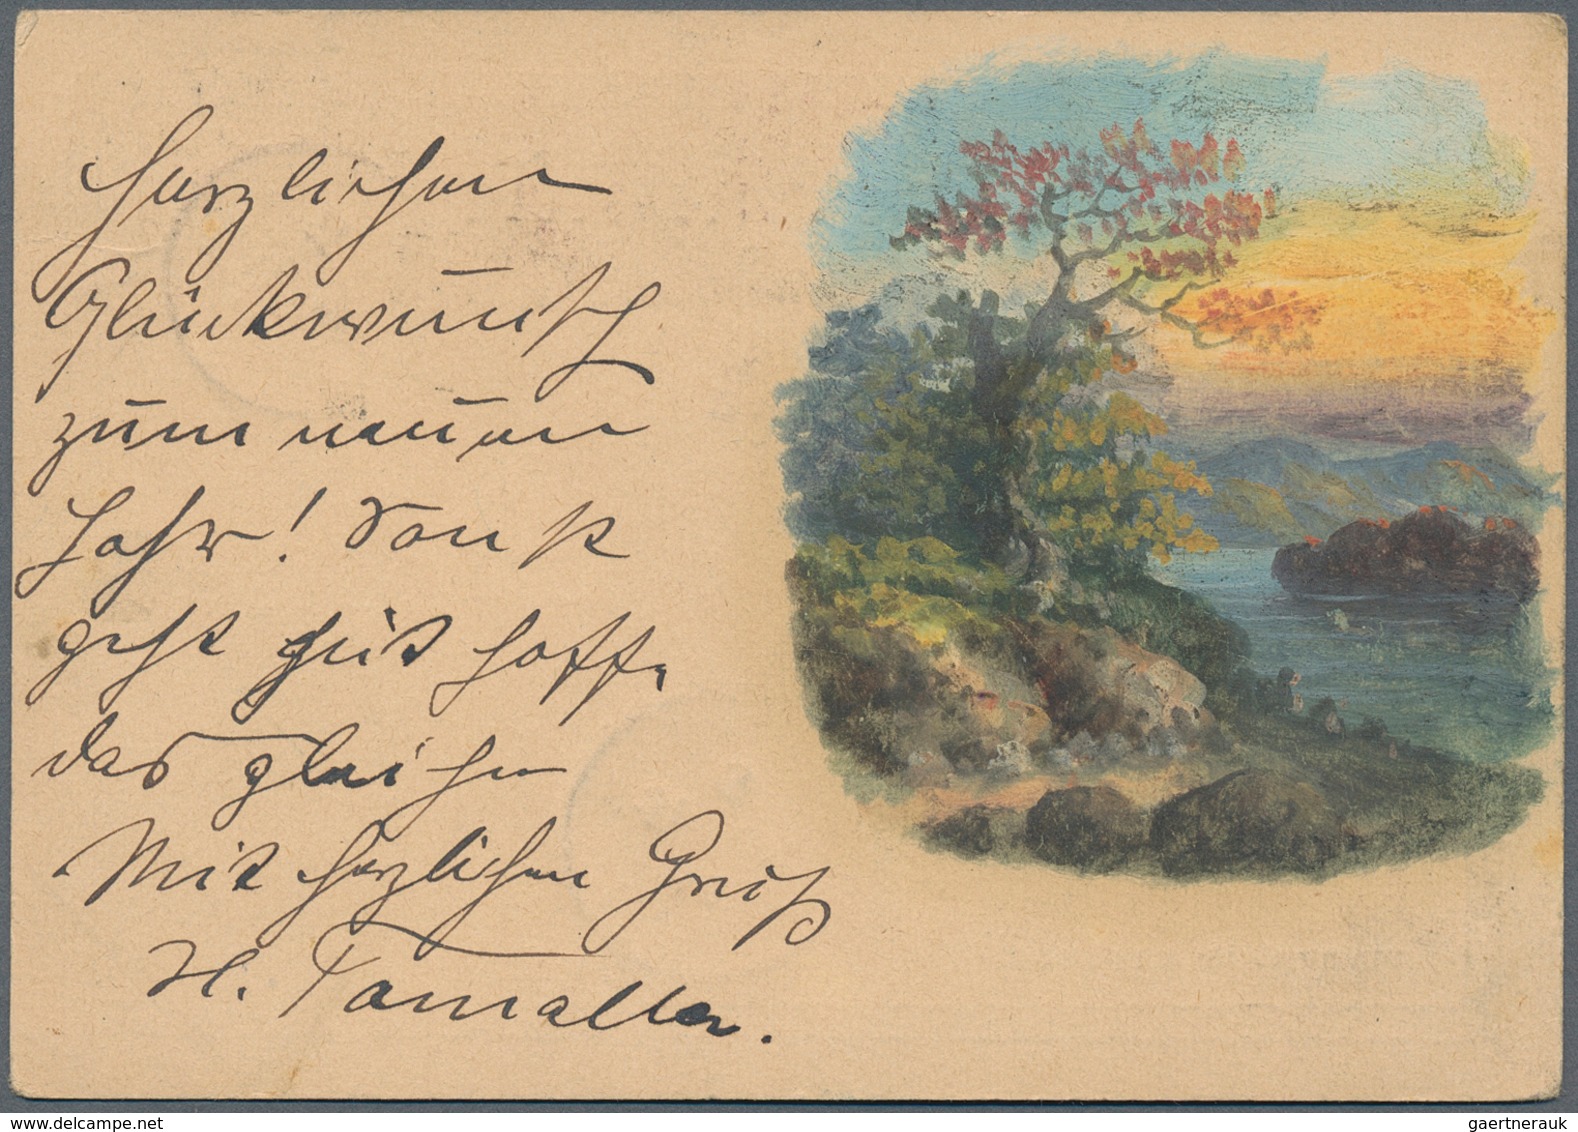 Herzlichen
Glückwunsch
zum neuen
Jahr! Sonst
geht gut hoffe
das gleichen
Mit herzlichen Gruß
H.
gaertnerauk